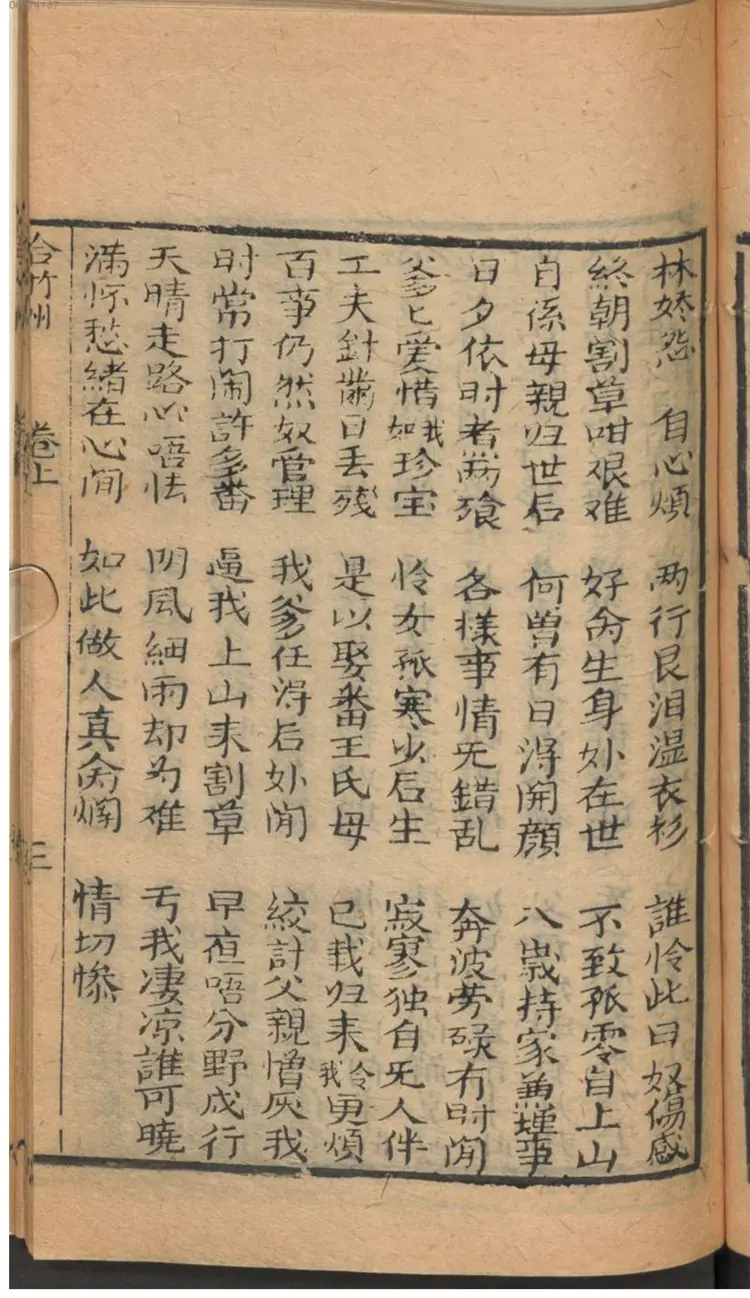 林娇怨 自心煩 两行艮泪湿衣衫 誰怜此日奴傷感
終朝割草咁艰难 好命生身妙在世 不致孤零自上山
自係母親归世后 何曽有日淂開顔 八嵗持家兼理事
日夕依时煮两飱 各樣事情无錯乱 奔波劳碌冇时閒
爹匕爱惜如我珍宝 怜女孤寒少后生 寂寥独自无人伴
工夫針黹日丢残 是以娶番王氏母 已載归来令我更煩
百事仍然奴管理 我爹任淂后妙閒 絞計父親憎厌我
时常打闹許多番 逼我上山来割草 早夜唔分野成行
天晴走路心唔怯 阴風細雨却为难 亏我凄凉誰可曉
滿怀愁緒在心间 如此做人真命𤓓 情切惨
合竹州 卷上 三